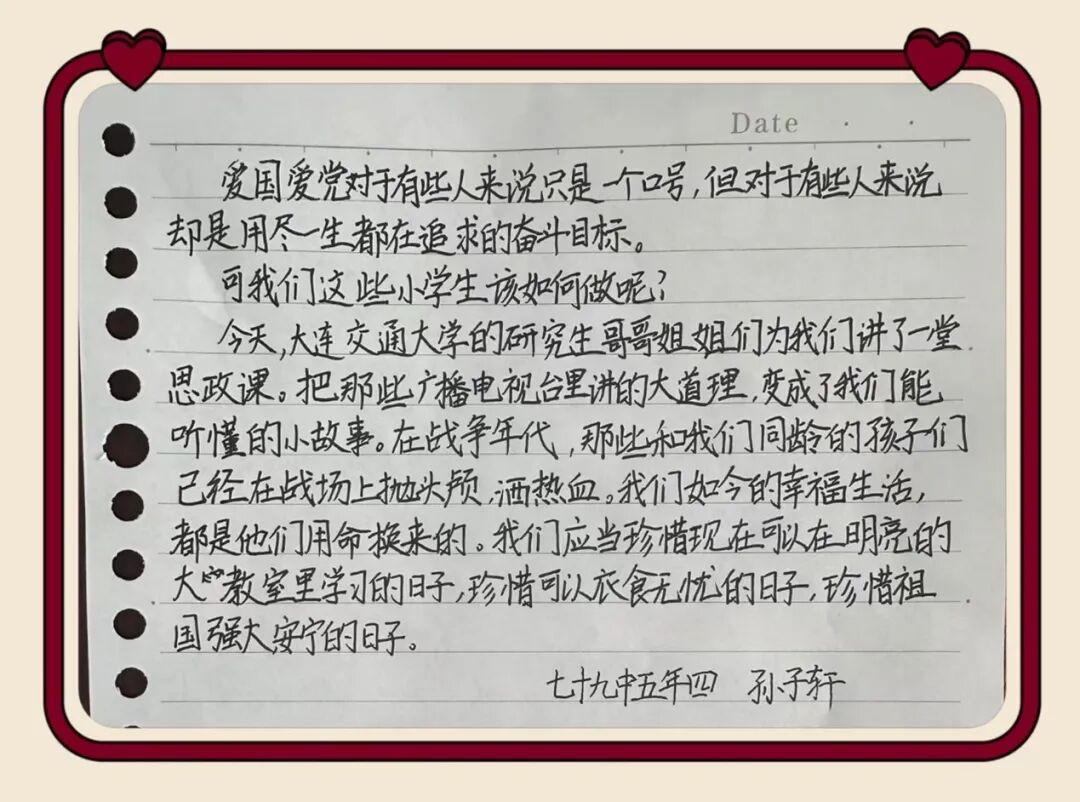 Date
爱国爱党对于有些人来说只是一个口号,但对于有些人来说
却是用尽一生都在追求的奋斗目标。
可我们这些小学生该如何做呢?
今天,大连交通大学的研究生哥哥姐姐们为我们讲了一堂
思政课。把那些广播电视台里讲的大道理,变成了我们能
听懂的小故事。在战争年代,那些和我们同龄的孩子们
已经在战场上抛头颅,洒热血。我们如今的幸福生活,
都是他们用命换来的。我们应当珍惜现在可以在明亮的
大教室里学习的日子,珍惜可以衣食无忧的日子,珍惜祖
国强大安宁的日子。
七十九中五年四 孙子轩